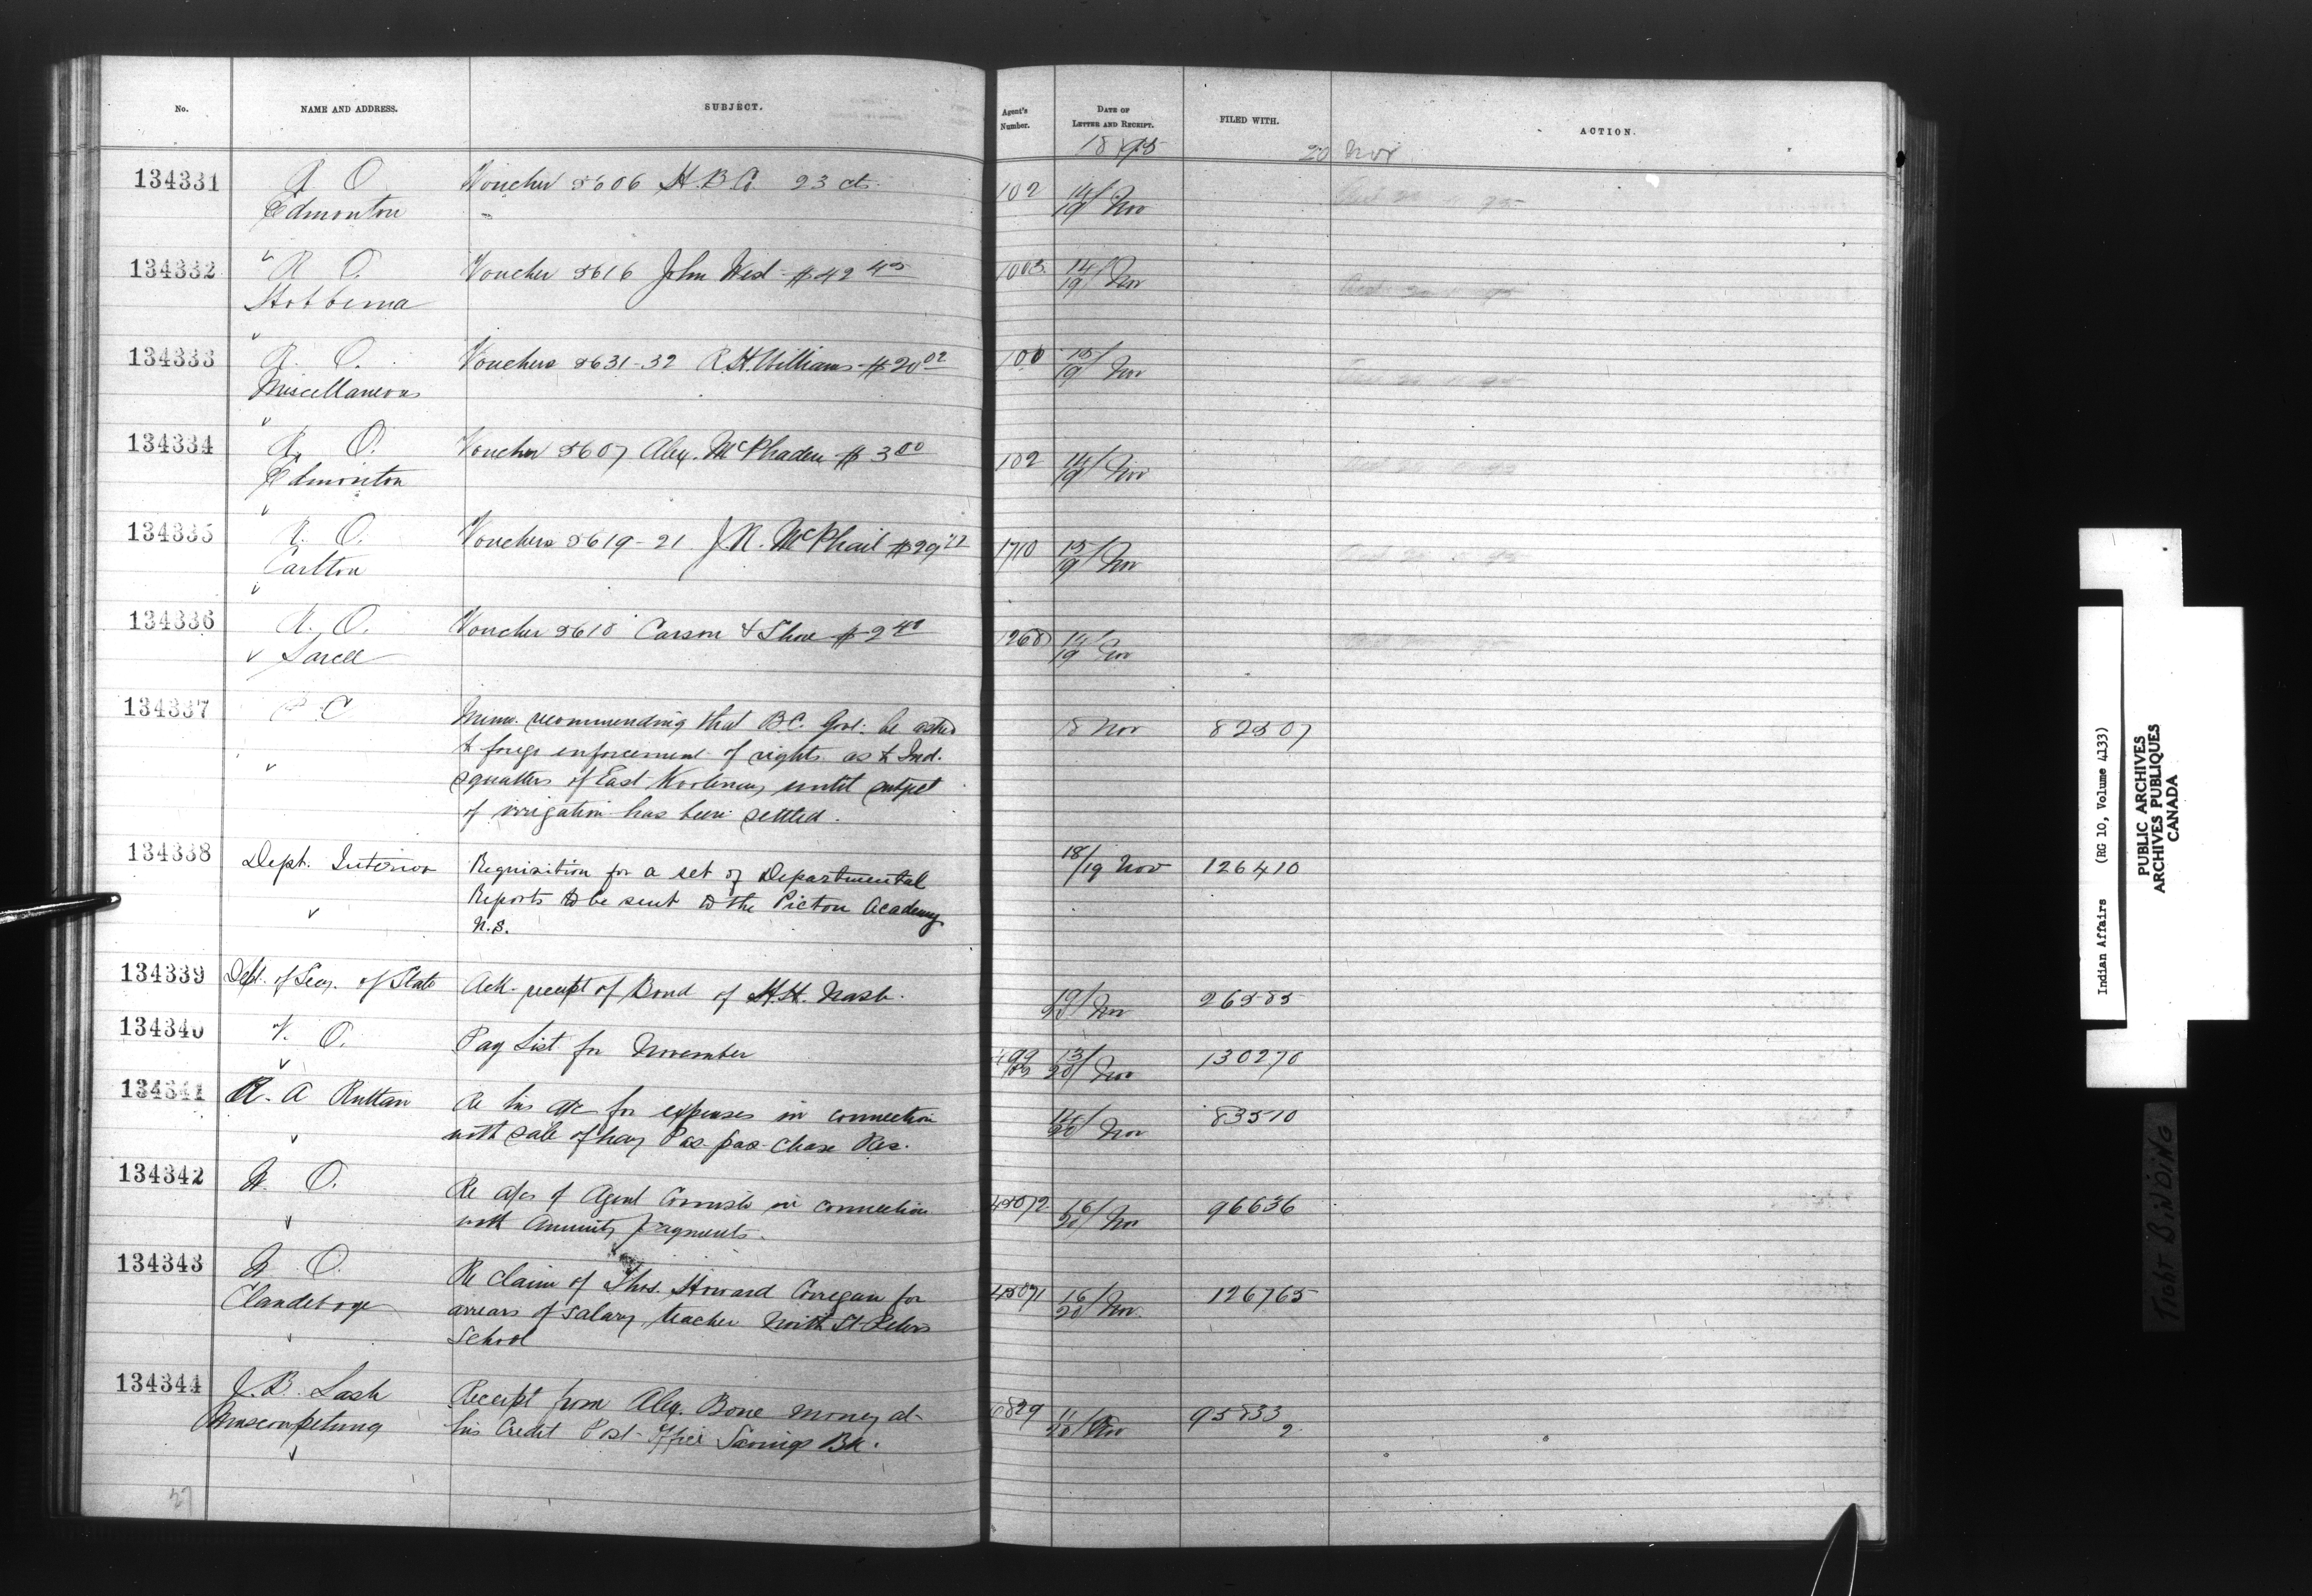 No. NAME AND ADDRESS. SUBJECT. Agent's Number. DATE OF LETTER AND RECEIPT. FILED WITH. ACTION.
1895 20 Nov
134331 R O Voucher 8606 H.B.Co. 23 cts. 102 14/19 Nov
Edmonton "
134332 R O. Voucher 8616 John West $42 1003 14/19 Nov
Hobbema
134333 R. O. Vouchers 8631-32 R.H. Williams $20 02 100 15/19 Nov
Miscellaneous
134334 R. O. Voucher 8607 Alex. McPhaden $3 00 102 14/19 Nov
Edmonton
134335 R. O. Vouchers 8619-21 J.N. McPhail $29 1710 15/19 Nov
Carlton
134336 R. O. Voucher 8618 Carson & Shore $2 40 1268 14/19 Nov
Sarcee
134337 P C Memo. recommending that B.C. Govt. be asked 18 Nov 82507
to forego enforcement of rights as to Ind.
squatters of East Kootenay until subject
of irrigation has been settled.
134338 Dept. Interior Requisition for a set of Departmental 18/19 Nov 126410
Reports to be sent to the Pictou Academy
N.S.
134339 Dept. of Secy. of State Ack. receipt of Bond of H.H. Nash. 19/20 Nov 26585
134340 V. O. Pay List for November 499 13/20 Nov 130270
134341 R. A Ruttan Re his a/c for expenses in connection 14/20 Nov 83510
with sale of hay Pas-pas-chase Res.
134342 W. O. Re a/cs of Agent Cornish in connection 45072 16/20 Nov 96636
with Annuity payments.
134343 W O. Re claim of Thos. Howard Corregan for 45071 16/20 Nov. 126765
Clandeboye arrears of salary, teacher North St. Peters
School
134344 J. B. Lash Receipt from Alex. Bone money at 6829 11/20 Nov 95833
Muscowpetung his Credit Post-Office Savings Bk. 2
27
Indian Affairs (RG 10, Volume 4133)
PUBLIC ARCHIVES
ARCHIVES PUBLIQUES
CANADA
TIGHT BINDING